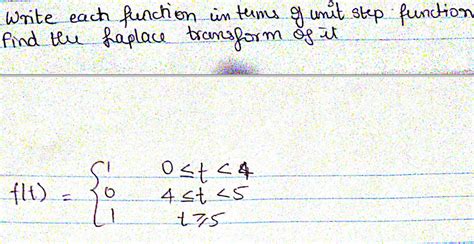 Write each function in terms of unit step function
Find the Laplace transform of it
f(t) = { 1 0 ≤ t < 4
0 4 ≤ t < 5
1 t ≥ 5